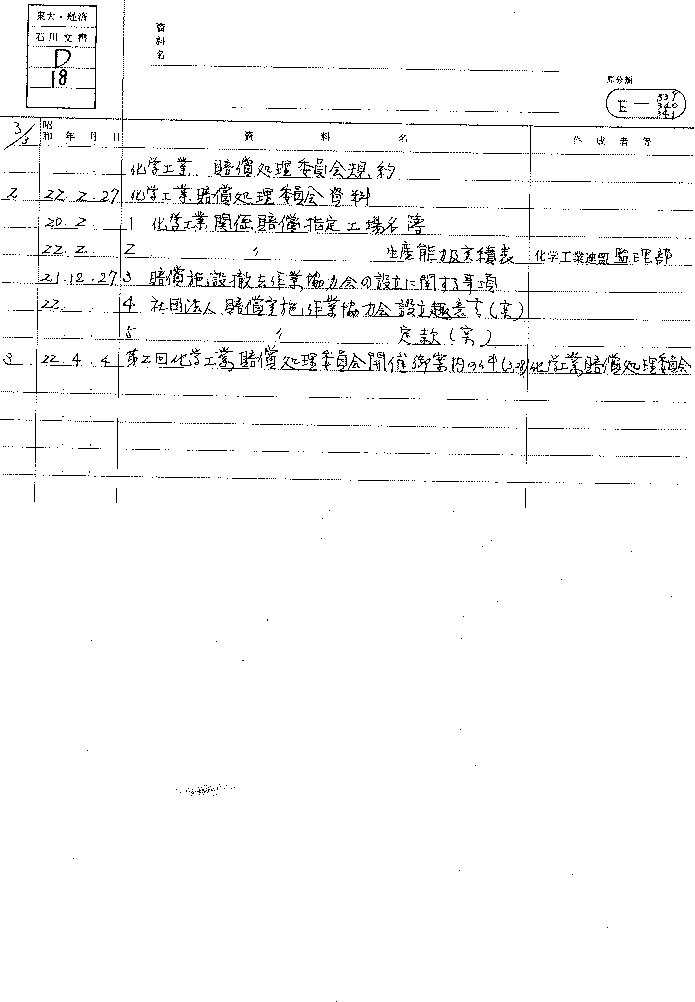 東大・経済
石川文書
D
18
資料名
原分類
E-
339
340
341
3/3
昭和 年 月 日 資料名 作成者等
化学工業、賠償処理委員会規約
2 22.2.27 化学工業賠償処理委員会資料
20.2 1 化学工業関係賠償指定工場名簿
22.2 2 〃 生産能力及実積表 化学工業連盟監理部
21.12.27 3 賠償施設撤去作業協力会の設立に関する事項
22. 4 社団法人賠償実施作業協力会設立趣意書(案)
5 〃 定款(案)
3 22.4.4 第2回化学工業賠償処理委員会開催御案内の件 化学工業賠償処理委員会